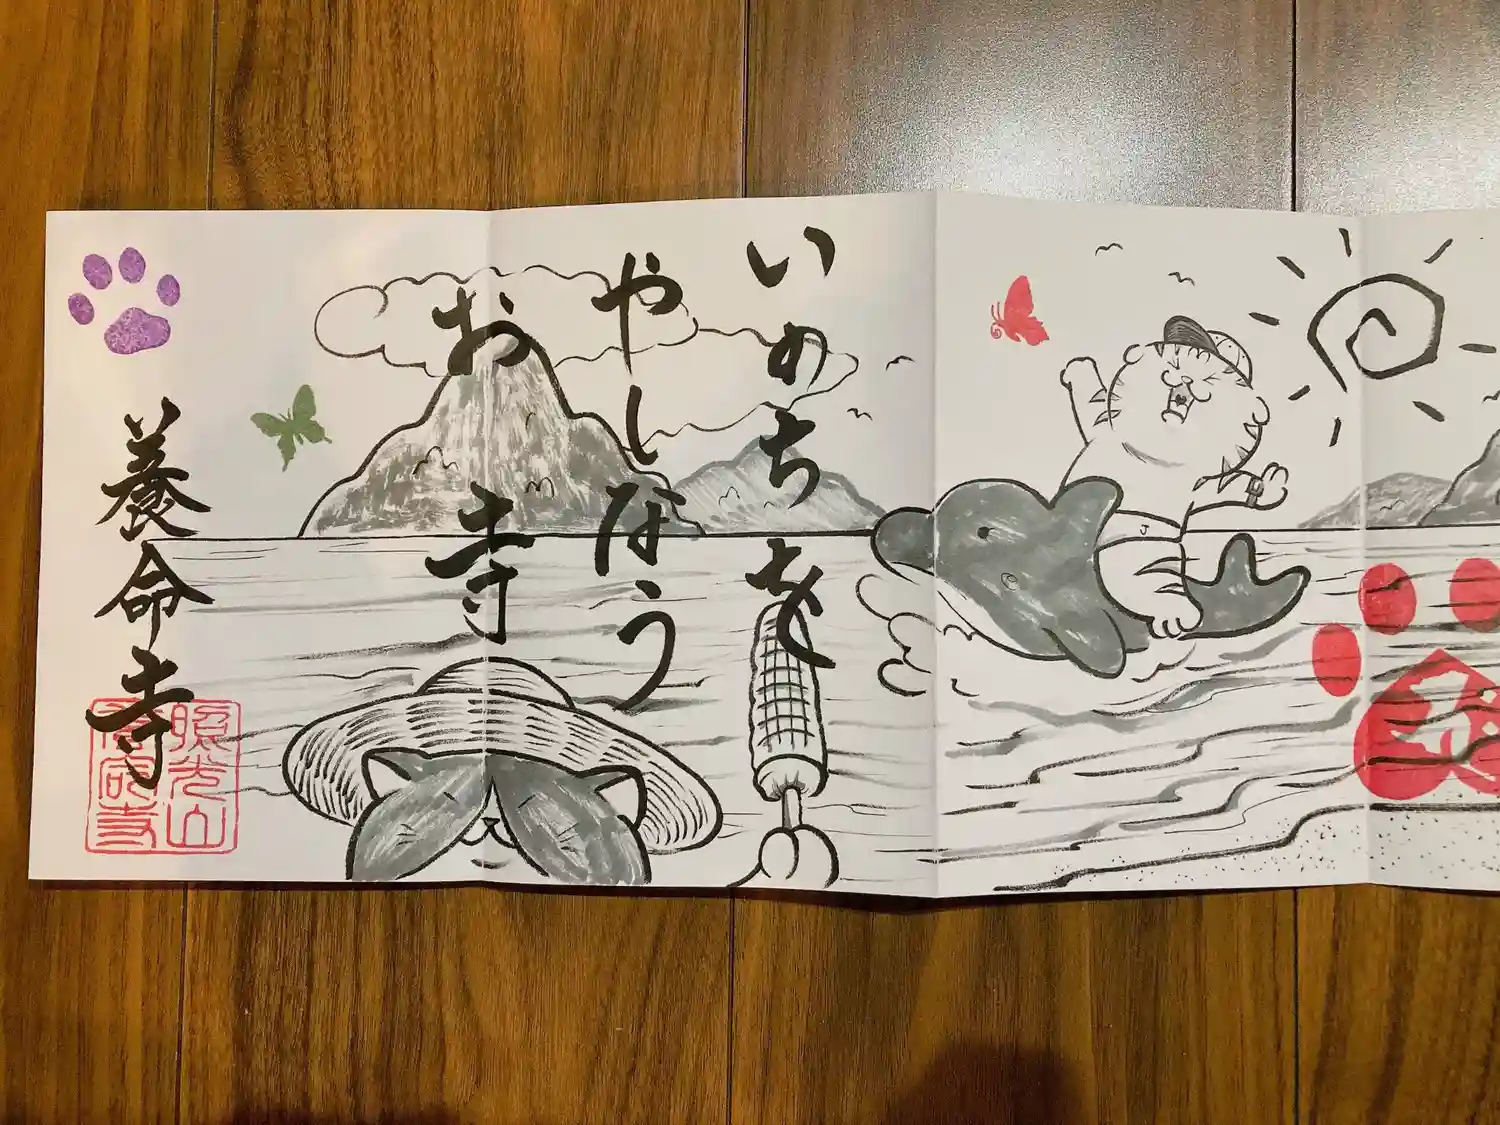 いのちを
やしなう
お寺
養命寺
照光山